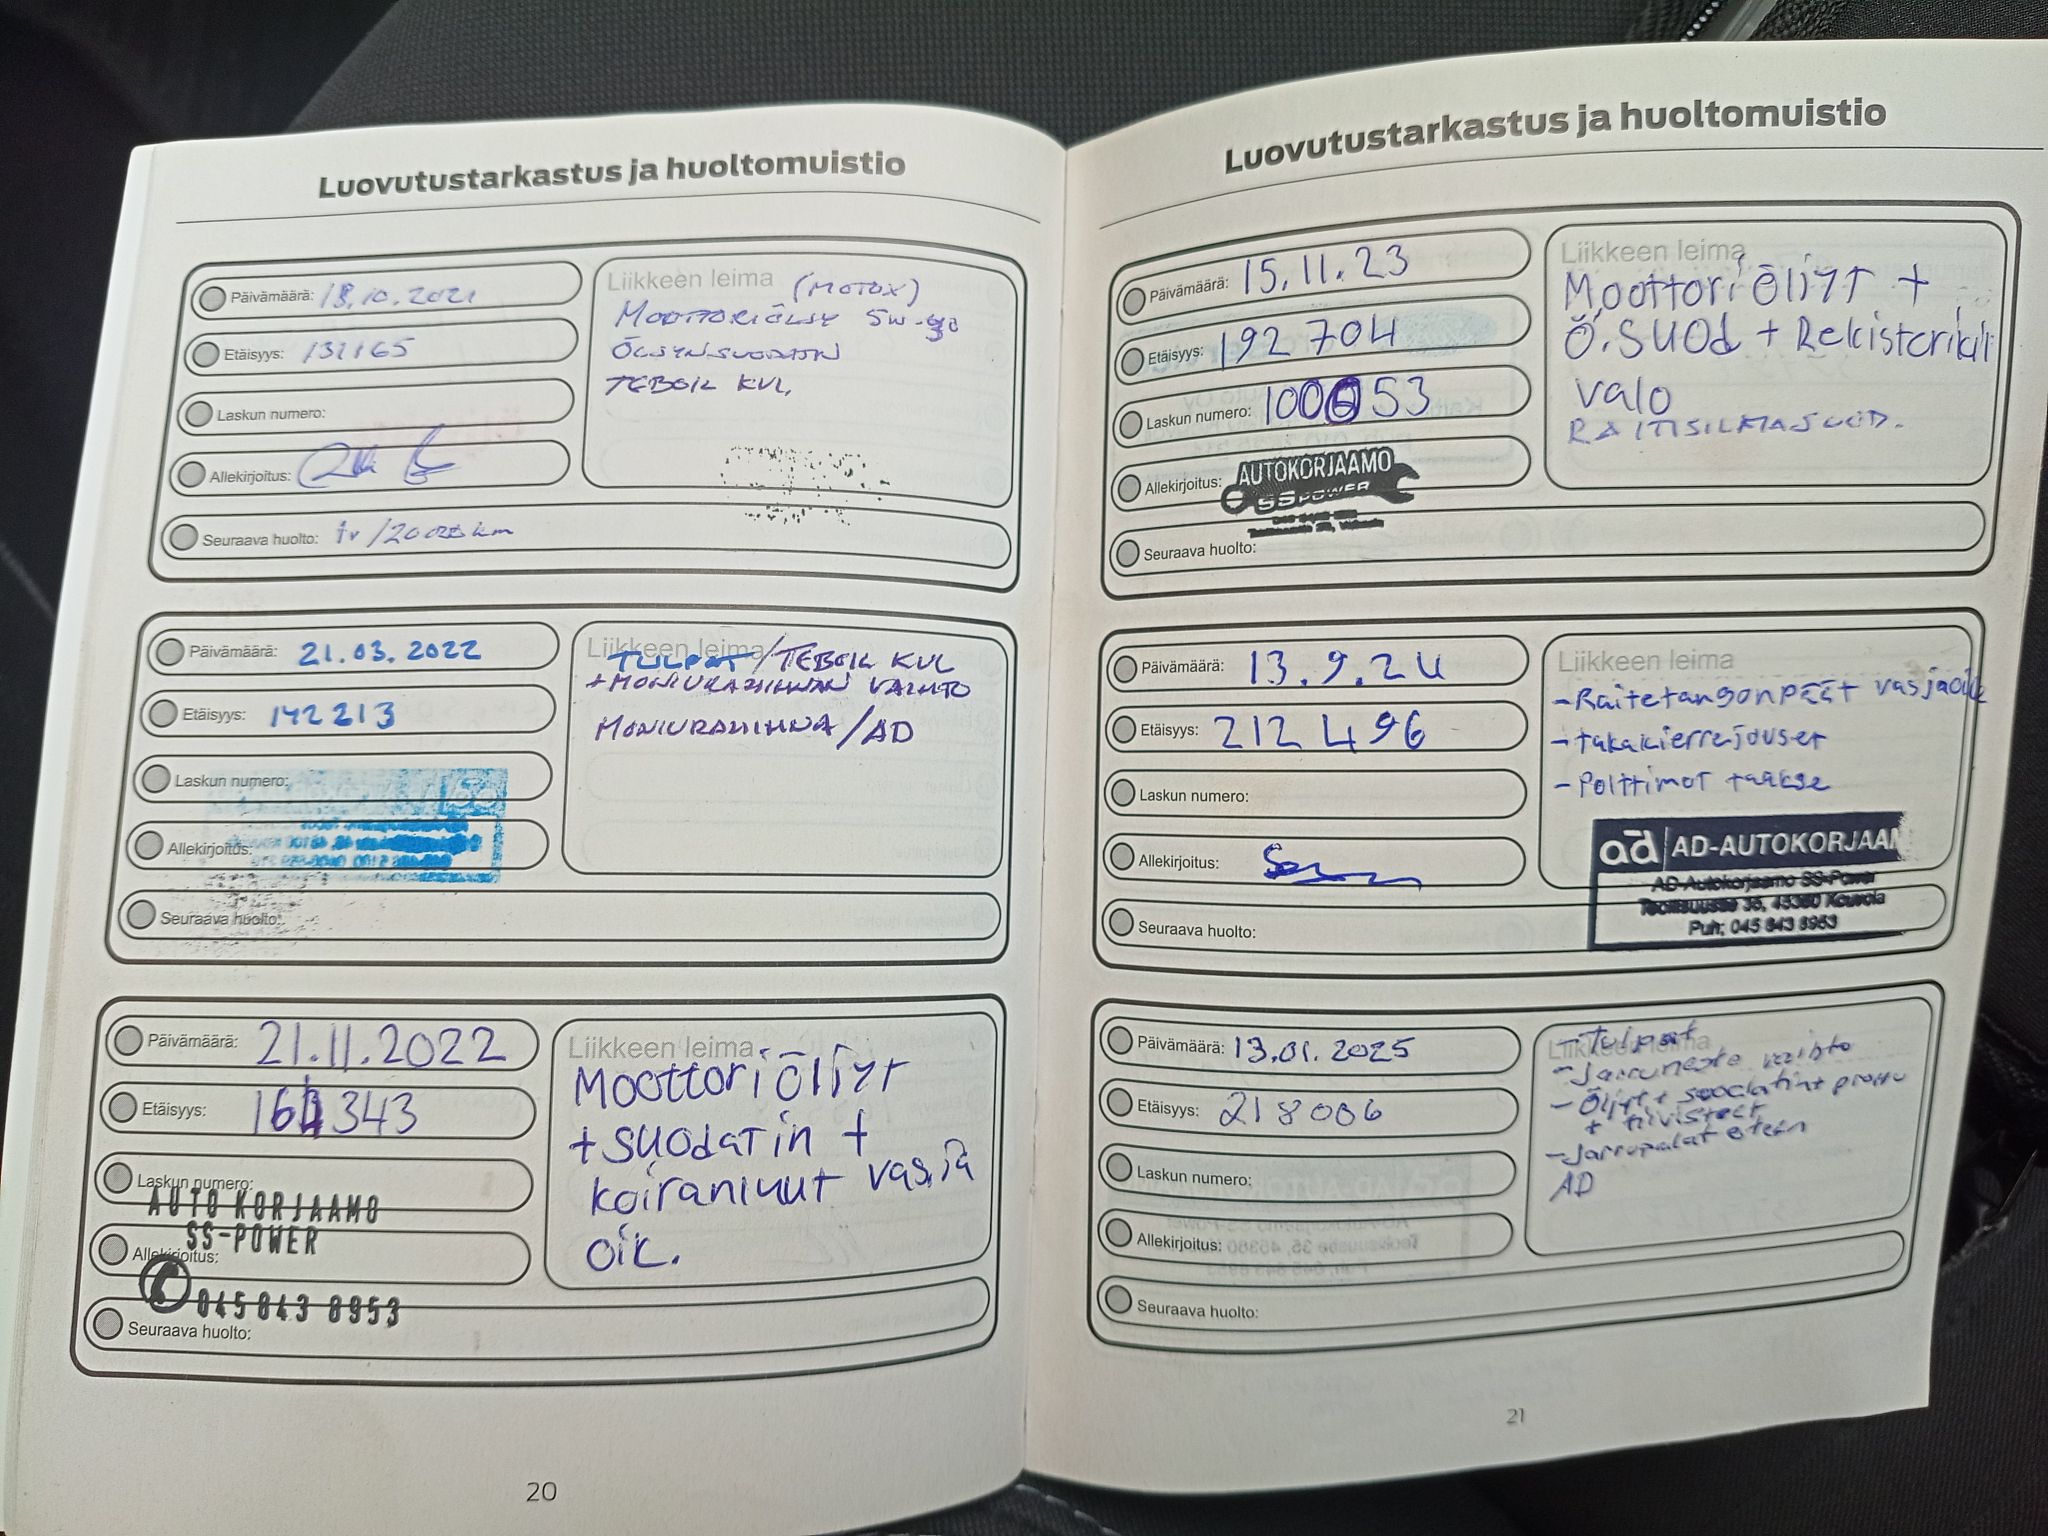 Luovutustarkastus ja huoltomuistio
Päivämäärä: 18.10.2021
Etäisyys: 131165
Laskun numero:
Allekirjoitus:
Seuraava huolto: 1v /20 000 km
Liikkeen leima (MOTOX)
MOOTTORIÖLJY 5W-30
ÖLJYNSUODATIN
TEBOIL KVL.
Päivämäärä: 21.03.2022
Etäisyys: 142213
Laskun numero:
Allekirjoitus:
Seuraava huolto:
Liikkeen leima
TULPAT/TEBOIL KVL
+MONIURAHIHNAN VAIHTO
MONIURAHIHNA/AD
Päivämäärä: 21.11.2022
Etäisyys: 164343
Laskun numero:
AUTO KORJAAMO
SS-POWER
Allekirjoitus:
045 843 8953
Seuraava huolto:
Liikkeen leima
Moottoriöljyt
+ suodatin +
koiranluut vas.ja
oik.
20
Luovutustarkastus ja huoltomuistio
Päivämäärä: 15.11.23
Etäisyys: 192704
Laskun numero: 100053
Allekirjoitus:
AUTOKORJAAMO
SS POWER
Seuraava huolto:
Liikkeen leima
Moottoriöljyt +
Ö.suod + Rekisterikil
valo
RAITISILMASUOD.
Päivämäärä: 13.9.24
Etäisyys: 212496
Laskun numero:
Allekirjoitus:
Seuraava huolto:
Liikkeen leima
-Raitetangonpäät vas ja oik
-takakierrejouset
-Polttimot taakse
ad AD-AUTOKORJAAM
AD-Autokorjaamo SS-Power
Teollisuustie 35, 45360 Kouvola
Puh; 045 843 8953
Päivämäärä: 13.01.2025
Etäisyys: 218006
Laskun numero:
Allekirjoitus:
Seuraava huolto:
Liikkeen leima
-Tulpat
-Jarruneste vaihto
-Öljyt + suodatin+ proppu
+ tiivisteet
-Jarrupalat eteen
AD
21